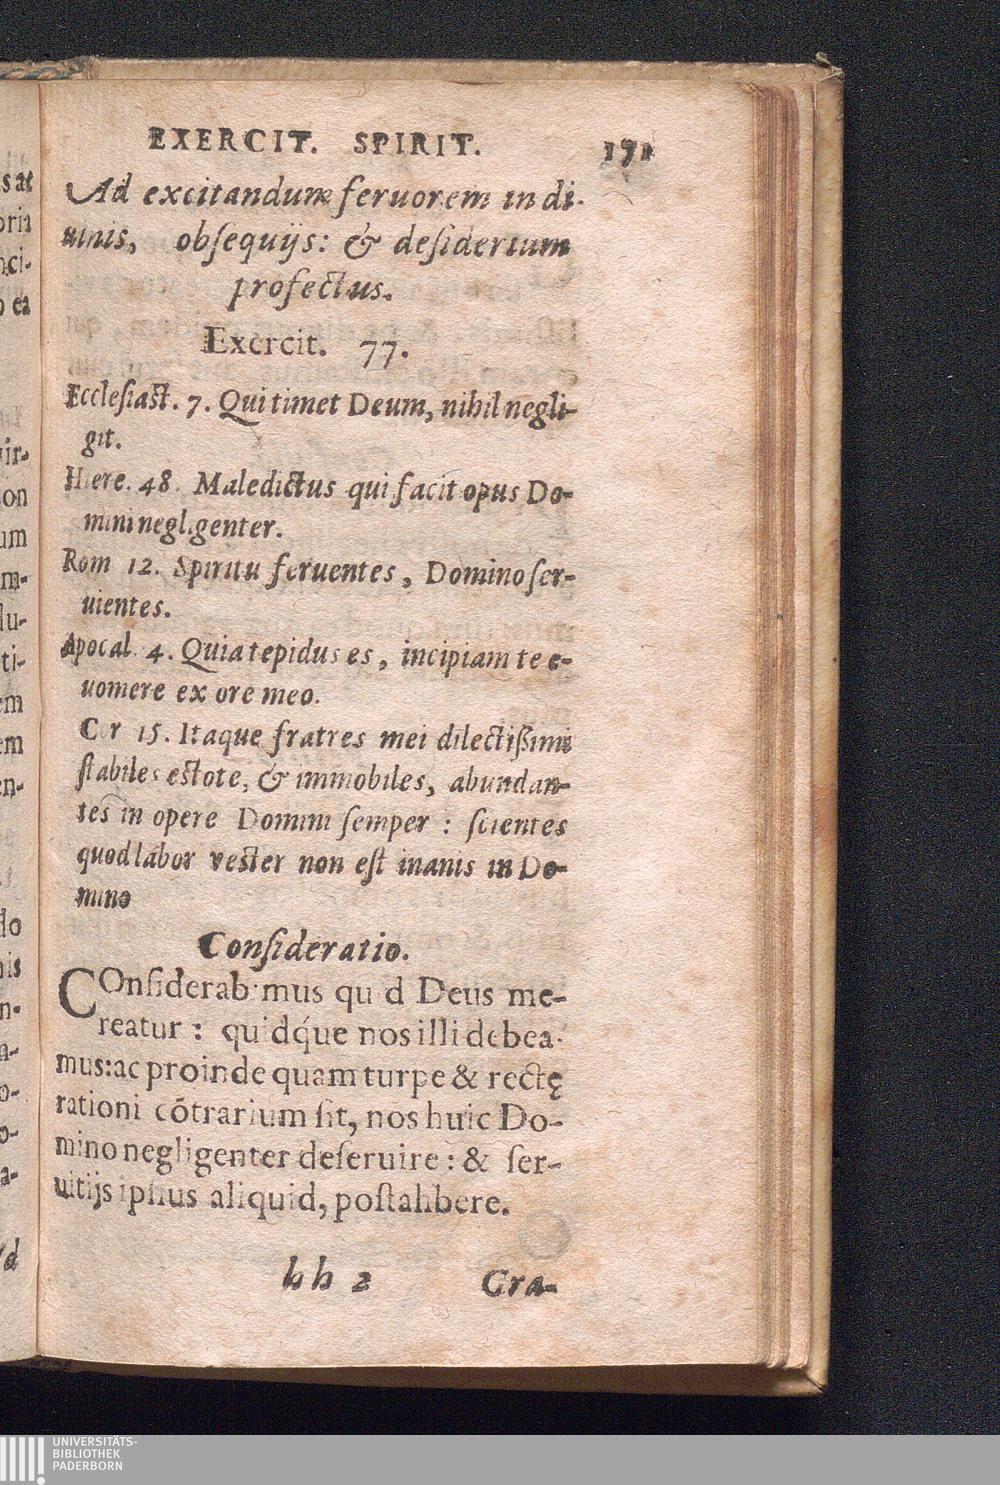 EXERCIT. SPIRIT. 171
Ad excitandum feruorem in di-
uinis, obsequijs: & desiderium
profectus.
Exercit. 77.
Ecclesiast. 7. Qui timet Deum, nihil negli-
git.
Hiere. 48. Maledictus qui facit opus Do-
mini negligenter.
Rom 12. Spiritu feruentes, Domino ser-
uientes.
Apocal. 4. Quia tepidus es, incipiam te e-
uomere ex ore meo.
Cor 15. Itaque fratres mei dilectißimi
stabiles estote, & immobiles, abundan-
tes in opere Domini semper: scientes
quod labor vester non est inanis in Do-
mino
Consideratio.
COnsiderabimus quod Deus me-
reatur: quidq́ue nos illi debea-
mus: ac proinde quam turpe & rectę
rationi cõtrarium sit, nos huic Do-
mino negligenter deseruire: & ser-
uitijs ipsius aliquid, postahbere.
hh 2 Gra-
UNIVERSITÄTS-
BIBLIOTHEK
PADERBORN